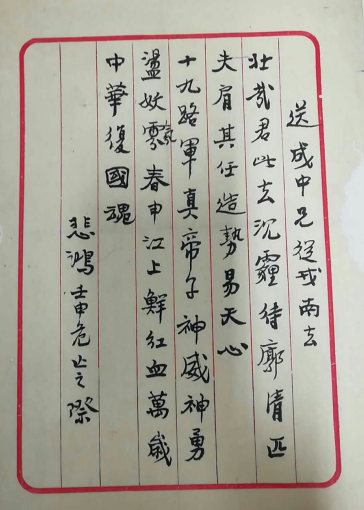 送成中兄從戎南去
壯哉君此去沉霾待廓清匹
夫肩其任造勢易天心
十九路軍真帝子神威神勇
盪妖雰春申江上鮮紅血萬歲
中華復國魂
悲鴻壬申危止之際